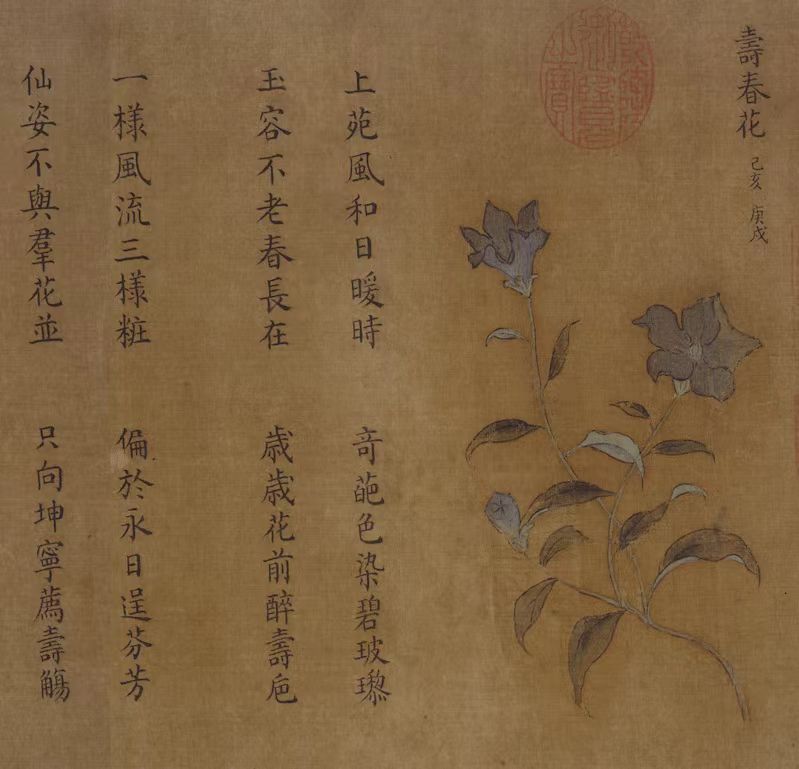 壽春花 己亥 庚戌
上苑風和日暖時 奇葩色染碧玻瓈
玉容不老春長在 歲歲花前醉壽巵
一樣風流三樣粧 偏於永日逞芬芳
仙姿不與羣花並 只向坤寧薦壽觴